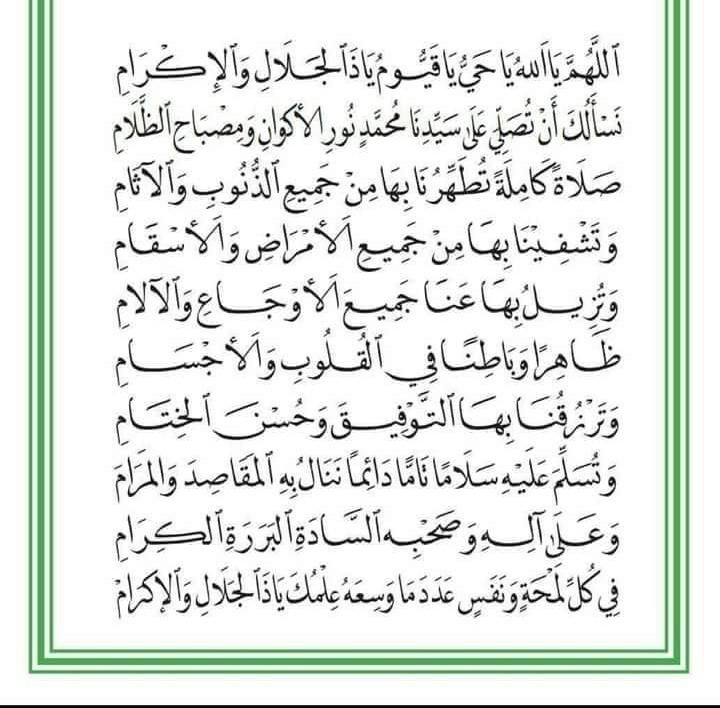 اَللَّهُمَّ يَا اَللهُ يَا حَيُّ يَا قَيُّومُ يَا ذَا الْجَلَالِ وَالْإِكْرَامِ
نَسْأَلُكَ أَنْ تُصَلِّيَ عَلَى سَيِّدِنَا مُحَمَّدٍ نُورِ الأَكْوَانِ وَمِصْبَاحِ الظَّلَامِ
صَلَاةً كَامِلَةً تُطَهِّرُنَا بِهَا مِنْ جَمِيعِ الذُّنُوبِ وَالْآثَامِ
وَتَشْفِينَا بِهَا مِنْ جَمِيعِ الْأَمْرَاضِ وَالْأَسْقَامِ
وَتُزِيلُ بِهَا عَنَّا جَمِيعَ الْأَوْجَاعِ وَالْآلَامِ
ظَاهِرًا وَبَاطِنًا فِي الْقُلُوبِ وَالْأَجْسَامِ
وَتَرْزُقُنَا بِهَا التَّوْفِيقَ وَحُسْنَ الْخِتَامِ
وَتُسَلِّمَ عَلَيْهِ سَلَامًا تَامًّا دَائِمًا نَنَالُ بِهِ الْمَقَاصِدَ وَالْمَرَامَ
وَعَلَى آلِهِ وَصَحْبِهِ السَّادَةِ الْبَرَرَةِ الْكِرَامِ
فِي كُلِّ لَمْحَةٍ وَنَفَسٍ عَدَدَ مَا وَسِعَهُ عِلْمُكَ يَا ذَا الْجَلَالِ وَالْإِكْرَامْ